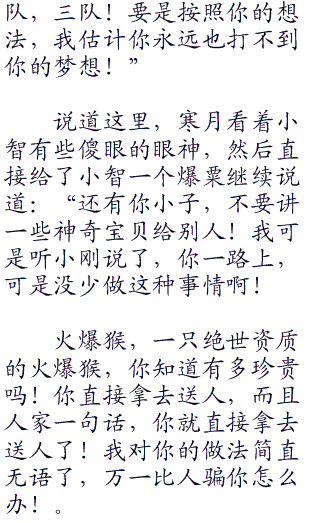 队，三队！要是按照你的想
法，我估计你永远也打不到
你的梦想！”
说道这里，寒月看着小
智有些傻眼的眼神，然后直
接给了小智一个爆粟继续说
道：“还有你小子，不要讲
一些神奇宝贝给别人！我可
是听小刚说了，你一路上，
可是没少做这种事情啊！
火爆猴，一只绝世资质
的火爆猴，你知道有多珍贵
吗！你直接拿去送人，而且
人家一句话，你就直接拿去
送人了！我对你的做法简直
无语了，万一比人骗你怎么
办！。